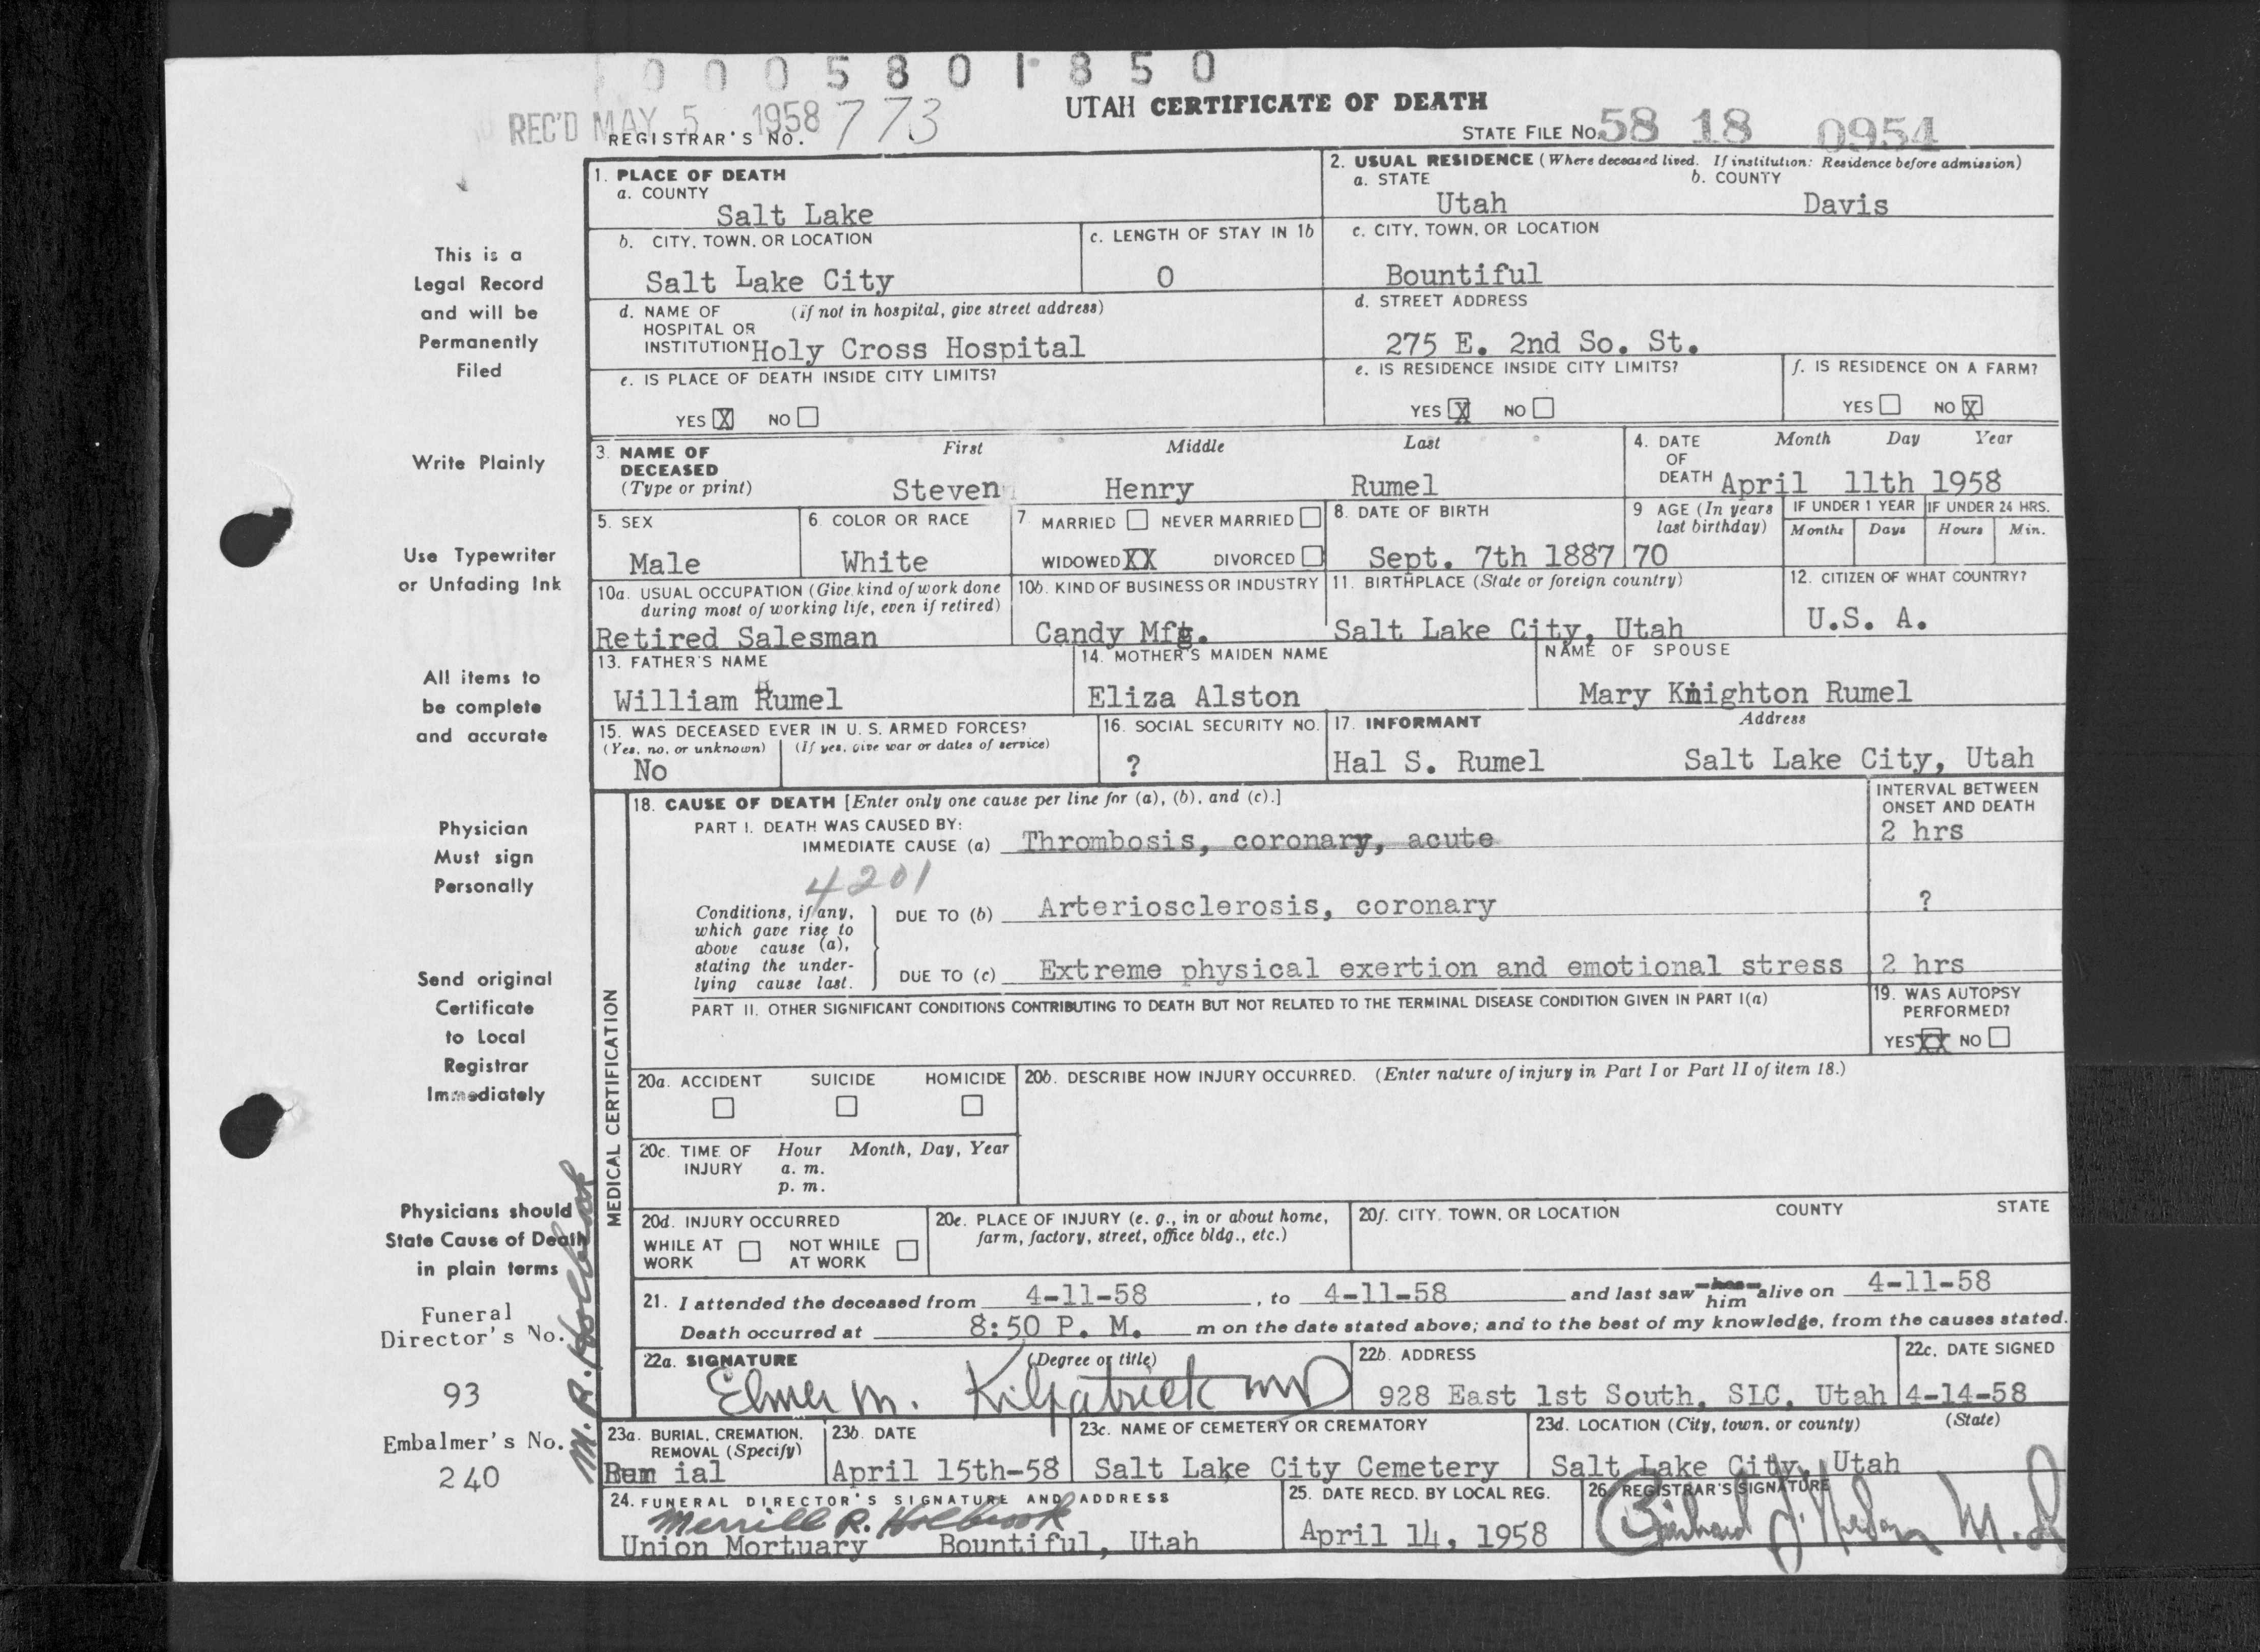 0005801850
UTAH CERTIFICATE OF DEATH
REC'D MAY 5 1958
REGISTRAR'S NO. 773
STATE FILE No. 58 18 0954
This is a
Legal Record
and will be
Permanently
Filed
Write Plainly
Use Typewriter
or Unfading Ink
All items to
be complete
and accurate
Physician
Must sign
Personally
Send original
Certificate
to Local
Registrar
Immediately
Physicians should
State Cause of Death
in plain terms
Funeral
Director's No.
93
Embalmer's No.
240
M. R. Holbrook
1. PLACE OF DEATH
a. COUNTY
Salt Lake
b. CITY, TOWN, OR LOCATION
Salt Lake City
c. LENGTH OF STAY IN 1b
0
d. NAME OF (if not in hospital, give street address)
HOSPITAL OR
INSTITUTION Holy Cross Hospital
e. IS PLACE OF DEATH INSIDE CITY LIMITS?
YES X NO
2. USUAL RESIDENCE (Where deceased lived. If institution: Residence before admission)
a. STATE b. COUNTY
Utah Davis
c. CITY, TOWN, OR LOCATION
Bountiful
d. STREET ADDRESS
275 E. 2nd So. St.
e. IS RESIDENCE INSIDE CITY LIMITS?
YES X NO
f. IS RESIDENCE ON A FARM?
YES NO X
3. NAME OF DECEASED (Type or print)
First Middle Last
Steven Henry Rumel
4. DATE OF DEATH Month Day Year
April 11th 1958
5. SEX
Male
6. COLOR OR RACE
White
7. MARRIED NEVER MARRIED
WIDOWED XX DIVORCED
8. DATE OF BIRTH
Sept. 7th 1887
9 AGE (In years last birthday)
70
IF UNDER 1 YEAR
Months Days
IF UNDER 24 HRS.
Hours Min.
10a. USUAL OCCUPATION (Give kind of work done
during most of working life, even if retired)
Retired Salesman
10b. KIND OF BUSINESS OR INDUSTRY
Candy Mfg.
11. BIRTHPLACE (State or foreign country)
Salt Lake City, Utah
12. CITIZEN OF WHAT COUNTRY?
U.S. A.
13. FATHER'S NAME
William Rumel
14. MOTHER'S MAIDEN NAME
Eliza Alston
NAME OF SPOUSE
Mary Knighton Rumel
15. WAS DECEASED EVER IN U. S. ARMED FORCES?
(Yes, no, or unknown) (If yes, give war or dates of service)
No
16. SOCIAL SECURITY NO.
?
17. INFORMANT Address
Hal S. Rumel Salt Lake City, Utah
MEDICAL CERTIFICATION
18. CAUSE OF DEATH [Enter only one cause per line for (a), (b), and (c).]
INTERVAL BETWEEN
ONSET AND DEATH
PART I. DEATH WAS CAUSED BY:
IMMEDIATE CAUSE (a) Thrombosis, coronary, acute 2 hrs
4201
Conditions, if any,
which gave rise to
above cause (a),
stating the under-
lying cause last.
DUE TO (b) Arteriosclerosis, coronary ?
DUE TO (c) Extreme physical exertion and emotional stress 2 hrs
PART II. OTHER SIGNIFICANT CONDITIONS CONTRIBUTING TO DEATH BUT NOT RELATED TO THE TERMINAL DISEASE CONDITION GIVEN IN PART I(a)
19. WAS AUTOPSY
PERFORMED?
YES XX NO
20a. ACCIDENT SUICIDE HOMICIDE
20b. DESCRIBE HOW INJURY OCCURRED. (Enter nature of injury in Part I or Part II of item 18.)
20c. TIME OF INJURY Hour Month, Day, Year
a. m.
p. m.
20d. INJURY OCCURRED
WHILE AT WORK NOT WHILE AT WORK
20e. PLACE OF INJURY (e. g., in or about home,
farm, factory, street, office bldg., etc.)
20f. CITY, TOWN, OR LOCATION COUNTY STATE
21. I attended the deceased from 4-11-58, to 4-11-58 and last saw her him alive on 4-11-58
Death occurred at 8:50 P. M. m on the date stated above; and to the best of my knowledge, from the causes stated.
22a. SIGNATURE (Degree or title)
Elmer M. Kilpatrick MD
22b. ADDRESS
928 East 1st South, SLC, Utah
22c. DATE SIGNED
4-14-58
23a. BURIAL, CREMATION,
REMOVAL (Specify)
Burial
23b. DATE
April 15th-58
23c. NAME OF CEMETERY OR CREMATORY
Salt Lake City Cemetery
23d. LOCATION (City, town, or county) (State)
Salt Lake City, Utah
24. FUNERAL DIRECTOR'S SIGNATURE AND ADDRESS
Merrill R. Holbrook
Union Mortuary Bountiful, Utah
25. DATE RECD. BY LOCAL REG.
April 14, 1958
26. REGISTRAR'S SIGNATURE
M.D